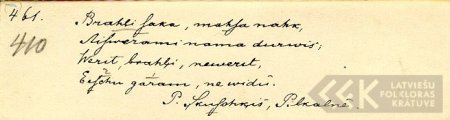 461.
410
Brahļi saka, mahsa nahk,
Aisweŗami nama durwis;
Werit, brahļi, newerit,
Eeschu gaŗam, ne widū.
P. Pilkalnē.
LATVIEŠU
FOLKLORAS
KRĀTUVE